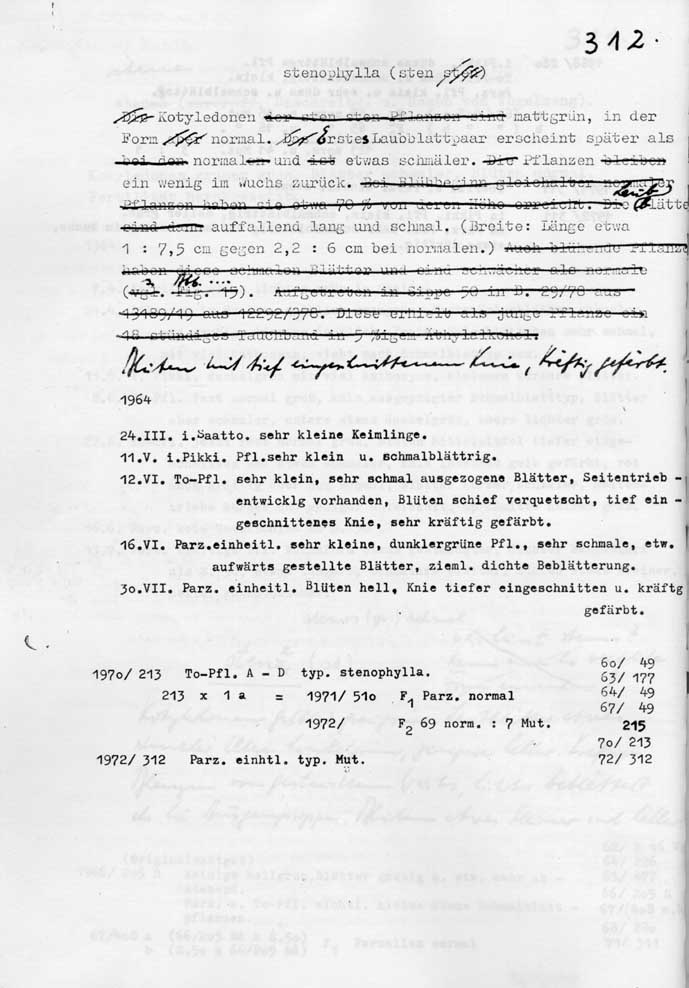 312.
stenophylla (sten st62)
Die Kotyledonen der sten sten Pflanzen sind mattgrün, in der
Form aber normal. Das Erstes Laubblattpaar erscheint später als
bei den normalen und ist etwas schmäler. Die Pflanzen bleiben
ein wenig im Wuchs zurück. Bei Blühbeginn gleichalter normaler
Pflanzen haben sie etwa 70 % von deren Höhe erreicht. Die Laubblätte
sind dann auffallend lang und schmal. (Breite: Länge etwa
1 : 7,5 cm gegen 2,2 : 6 cm bei normalen.) Auch blühende Pflanze
haben diese schmalen Blätter und sind schwächer als normale
(vgl. Abb. .... Fig. 15). Aufgetreten in Sippe 50 in B. 29/78 aus
13189/19 aus 12292/378. Diese erhielt als junge Pflanze ein
18 stündiges Tauchband in 5 %igem Äthylalkohol.
Blüten mit tief eingeschnittenem Knie, kräftig gefärbt.
1964
24.III. i.Saatto. sehr kleine Keimlinge.
11.V. i.Pikki. Pfl.sehr klein u. schmalblättrig.
12.VI. To-Pfl. sehr klein, sehr schmal ausgezogene Blätter, Seitentrieb -
entwicklg vorhanden, Blüten schief verquetscht, tief ein -
geschnittenes Knie, sehr kräftig gefärbt.
16.VI. Parz.einheitl. sehr kleine, dunklergrüne Pfl., sehr schmale, etw.
aufwärts gestellte Blätter, zieml. dichte Beblätterung.
3o.VII. Parz. einheitl. Blüten hell, Knie tiefer eingeschnitten u. kräftg
gefärbt.
60/ 49
197o/ 213 To-Pfl. A - D typ. stenophylla.
63/ 177
213 x 1 a = 1971/ 51o F1 Parz. normal
64/ 49
67/ 49
1972/ F2 69 norm. : 7 Mut.
215
7o/ 213
1972/ 312 Parz. einhtl. typ. Mut.
72/ 312